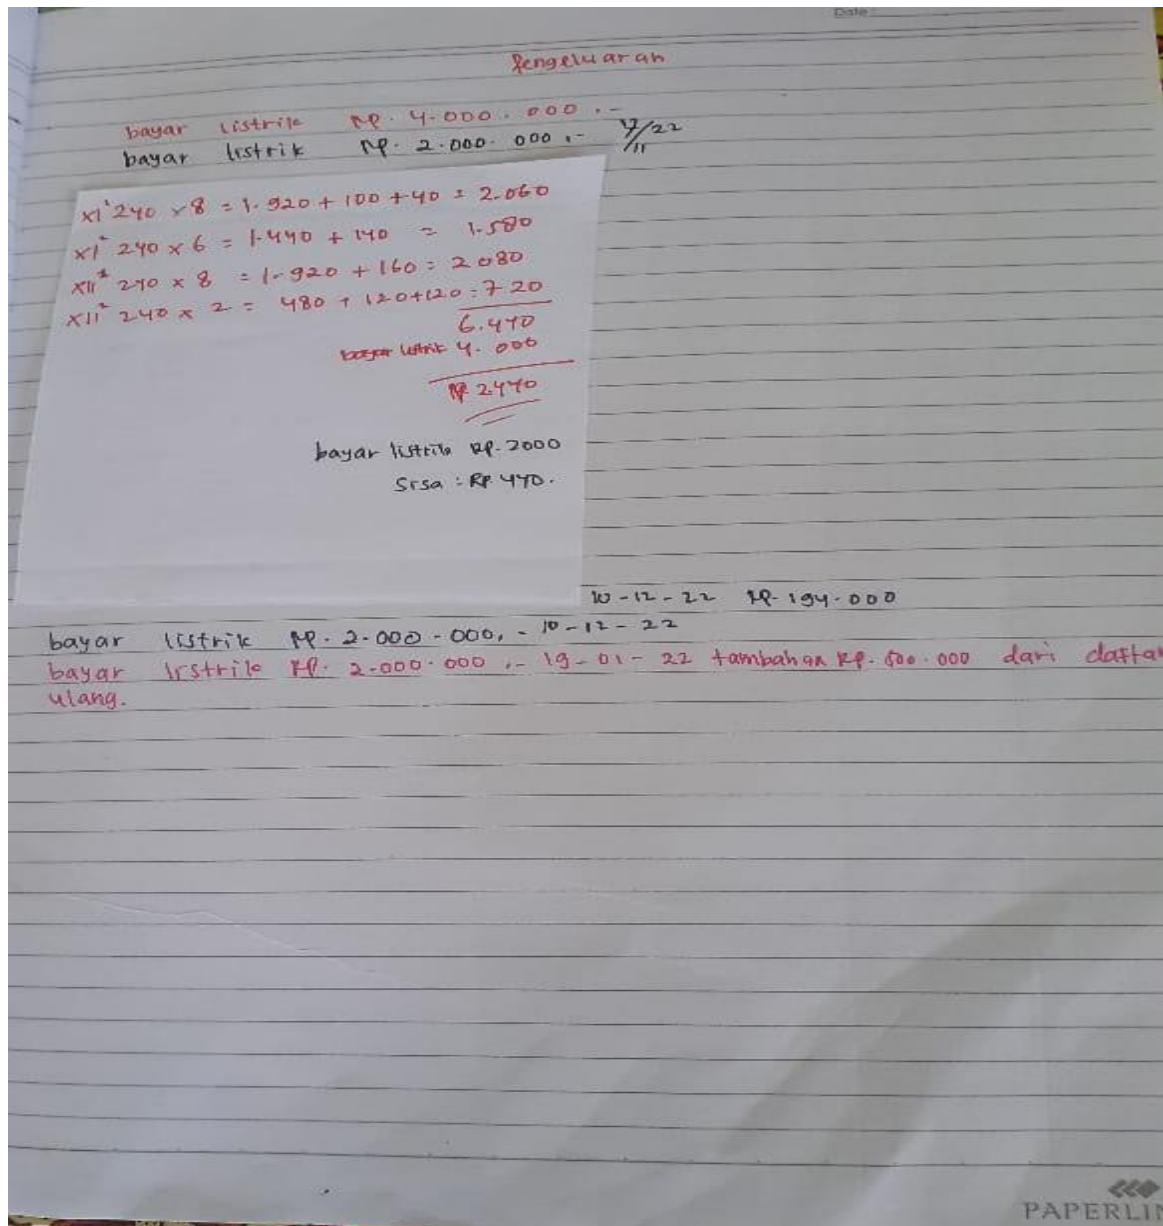 Date:
Pengeluaran
bayar listrik Rp. 4.000.000.-
bayar listrik Rp. 2.000.000,- 17/11/22
XI¹ 240 x 8 = 1.920 + 100 + 40 = 2.060
XI² 240 x 6 = 1.440 + 140 = 1.580
XII¹ 240 x 8 = 1.920 + 160 = 2080
XII² 240 x 2 = 480 + 120 + 120 = 720
6.440
bayar listrik 4.000
Rp 2.440
bayar listrik Rp. 2000
Sisa : Rp. 440.
10-12-22 Rp. 194.000
bayar listrik Rp. 2.000.000,- 10-12-22
bayar listrik Rp. 2.000.000,- 19-01-22 tambahan Rp. 500.000 dari daftar
ulang.
PAPERLIN